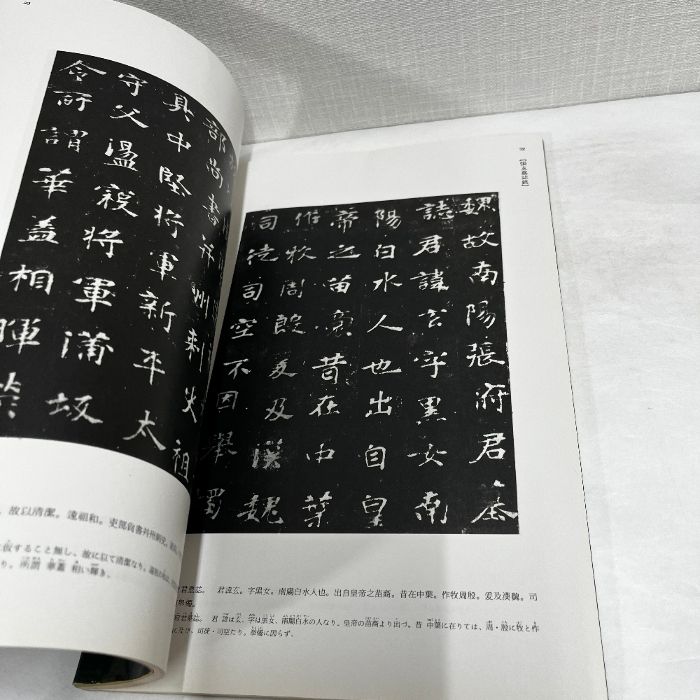 【張玄墓誌銘】
魏故南陽張府君墓
誌君諱玄字黑女南
陽白水人也出自皇
帝之苗裔昔在中葉
作牧周殷爰及漢魏
司徒司空不因舉燭
君墓誌。 君諱玄。字黑女。南陽白水人也。出自皇帝之苗裔。昔在中葉。作牧周殷。爰及漢魏。司
君墓誌。 君 諱は玄、字は黑女、南陽白水の人なり。皇帝の苗裔より出づ。昔 中葉に在りては、周・殷に牧と作
に及び、司徒・司空たり。擧燭に因らず、
部尚書并州刺史祖
具中堅將軍新平太
守父盪寇將軍蒲坂
令所謂華蓋相暉榮
故以清潔。遠祖和。吏部尚書并州刺史。
すること無し、故に以て清潔なり。
り。所謂 華蓋 相い輝き、